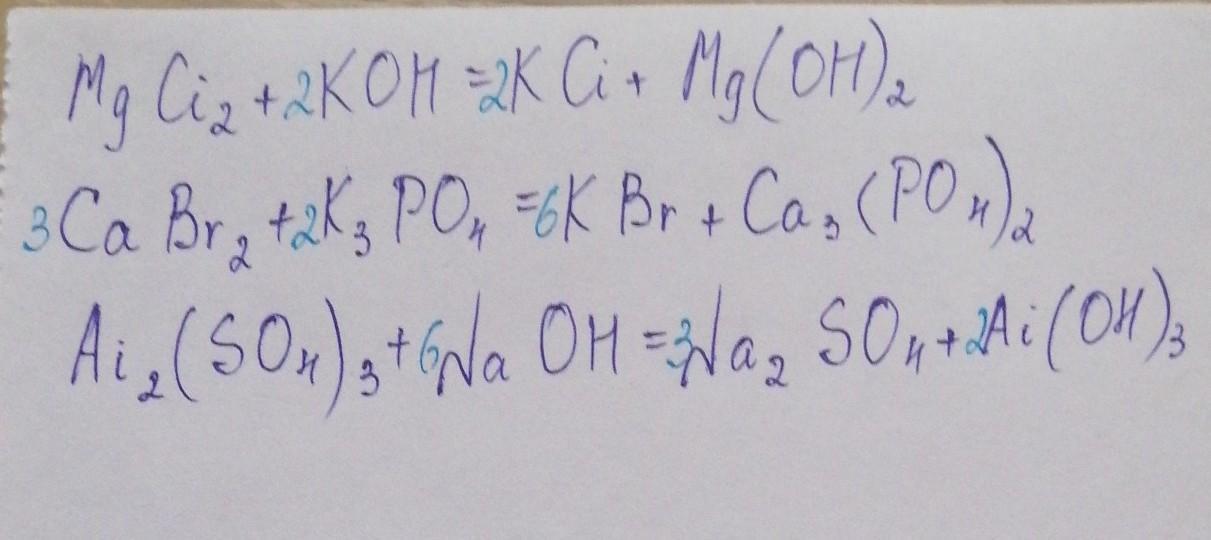 MgCi₂+2KOH=2KCi+Mg(OH)₂
3CaBr₂+2K₃PO₄=6KBr+Ca₃(PO₄)₂
Ai₂(SO₄)₃+6NaOH=3Na₂SO₄+2Ai(OH)₃